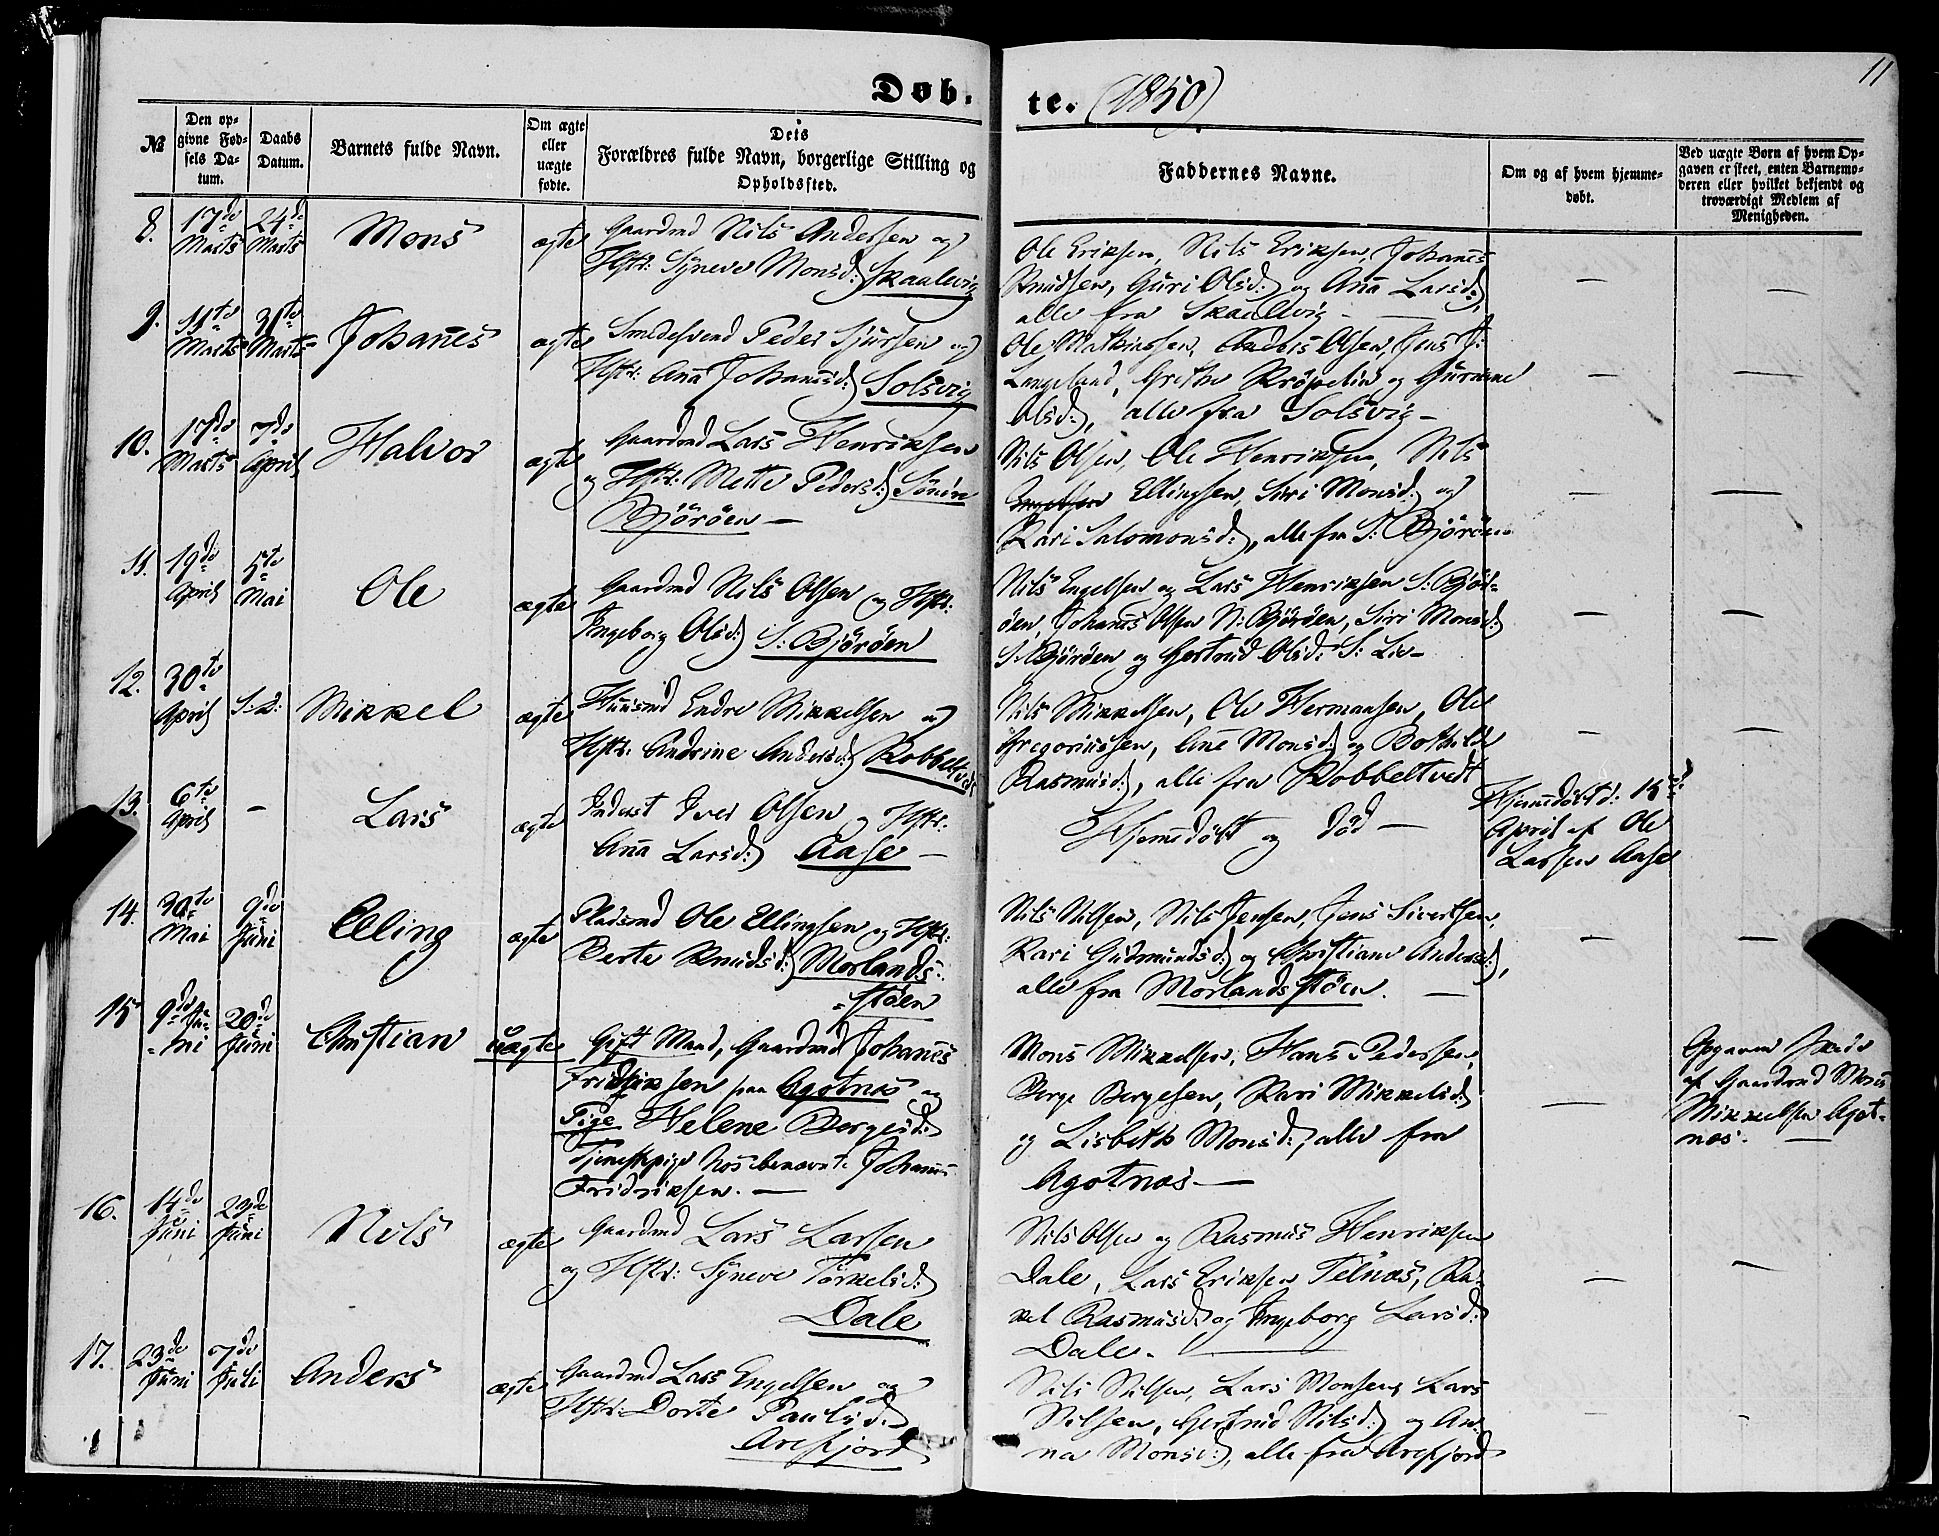 Døb-
te. (1850)
11
№
Den op-
givne Fød-
sels Da-
tum.
Daabs
Datum.
Barnets fulde Navn.
Om ægte
eller
uægte
fødte.
Dets
Forældres fulde Navn, borgerlige Stilling og
Opholdssted.
Faddernes Navne.
Om og af hvem hjemme-
døbt.
Ved uægte Børn af hvem Op-
gaven er skeet, enten Barnemo-
deren eller hvilket bekjendt og
troværdigt Medlem af
Menigheden.
8.
17de
Marts
24de
Marts
Mons
ægte
Gaardmd Nils Andersen og
Hstr: Syneve Monsd: Skaalevig
Ole Eriksen, Nils Eriksen, Johanes
Knudsen, Guri Olsd: og Aña Larsd:
alle fra Skaalvig —
9.
11te
Marts
31te
Marts
Johañes
ægte
Smedesvend Peder Sjursen og
Hstr: Aña Johanesd: Solsvig
Ole Mathiassen, Anders Olsen, Jens J:
Langeland, Grethe Krøpelin og Gurine
Olsd:, alle fra Solsvig —
10.
17de
Marts
7de
April
Halvor
ægte
Gaardmd Lars Henriksen
og Hstr: Mette Pedersd: Søndre
Bjørøen —
Nils Olsen, Ole Henriksen, Nils
Engelsen Ellingsen, Siri Monsd: og
Kari Salomonsd:, alle fra S: Bjørøen
11.
19de
April
5te
Mai
Ole
ægte
Gaardmd Nils Olsen og Hstr:
Ingeborg Olsd: S: Bjørøen
Nils Engelsen og Lars Henriksen S: Bjør-
øen, Johanes Olsen N: Bjørøen, Siri Monsd:
S: Bjørøen og Gertrud Olsd: S: Lie —
12.
30te
April
S: D:
Mikkel
ægte
Huusmd Endre Mikkelsen og
Hstr: Andrine Andersd: Kobbeltvedt
Nils Mikkelsen, Ole Hermansen, Ole
Gregoriussen, Ane Monsd: og Bothilde
Rasmusd:, alle fra Kobbeltvedt
13.
6te
April
—
Lars
ægte
Inderst Iver Olsen og Hstr:
Aña Larsd: Aase —
Hjemedøbt og død —
Hjemedøbt d: 15de
April af Ole
Larsen Aase
14.
30te
Mai
9de
Juni
Elling
ægte
Pladsmd Ole Ellingsen og Hstr:
Berte Knudsd: Morlands-
støen
Nils Nilsen, Nils Jensen, Jens Sivertsen,
Kari Gudmundsd: og Christiane Andersd:,
alle fra Morlandsstøen. —
15
9de Ju-
ni
20de
Juni
Christian
uægte
Gift Mand, Gaardmd Johanes
Fridriksen paa Agotnæs og
Pige Helene Børgesd:
Tjenestepige hos benævnte Johanes
Fridriksen. —
Mons Mikkelsen, Hans Pedersen,
Børge Børgesen, Kari Mikkelsd:
og Lisbeth Monsd:, alle fra
Agotnæs —
Opgaven skede
af Gaardmd Mons
Mikkelsen Agot-
næs. —
16.
14de
Juni
29de
Juni
Nils
ægte
Gaardmd Lars Larsen
og Hstr: Syneve Torkelsd:
Dale
Nils Olsen og Rasmus Henriksen
Dale, Lars Eriksen Telnæs, Ra-
kel Rasmusd: og Ingeborg Larsd:
Dale. —
17.
23de
Juni
7de
Juli
Anders
ægte
Gaardmd Lars Engelsen og
Hstr: Dorte Paulsd:
Arefjord
Nils Nilsen, Lars Monsen, Lars
Nilsen, Gertrud Nilsd: og An-
na Monsd:, alle fra Arefjord